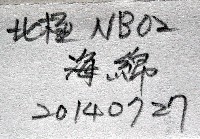 北極 NB02
海綿
20140727